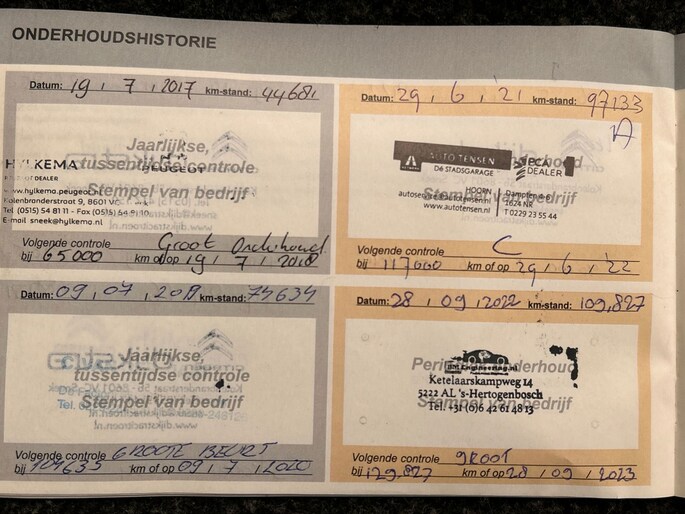 ONDERHOUDSHISTORIE
Datum: 19 . 7 . 2017 km-stand: 44681
Jaarlijkse,
tussentijdse controle
Stempel van bedrijf
HYLKEMA PEUGEOT
DEALER
www.hylkema.peugeot.nl
Kolenbranderstraat 9, 8601
Tel. (0515) 54 81 11 - Fax (0515)
E-mail sneek@hylkema.nl
Volgende controle Groot Onderhoud
bij 65000 km of op 19 . 7 . 2018
Datum: 09 . 07 . 2019 km-stand: 74634
Jaarlijkse,
tussentijdse controle
Stempel van bedrijf
Tel.
Volgende controle GROOTE BEURT
bij 104635 km of op 09 . 7 . 2020
Datum: 29 . 6 . '21 km-stand: 97133
AUTO TENSEN
Dé STADSGARAGE
DEALER
HOORN
autoservice@autotensen.nl
www.autotensen.nl
Dampten 6-8
1624 NR
T 0229 23 55 44
Volgende controle C
bij 117000 km of op 29 . 6 . '22
Datum: 28 . 09 . 2022 km-stand: 109,827
Ketelaarskampweg 14
5222 AL 's-Hertogenbosch
Tel. +31 (0)6 42 61 48 13
Stempel van bedrijf
Volgende controle GROOT
bij 129.827 km of op 28 . 09 . 2023